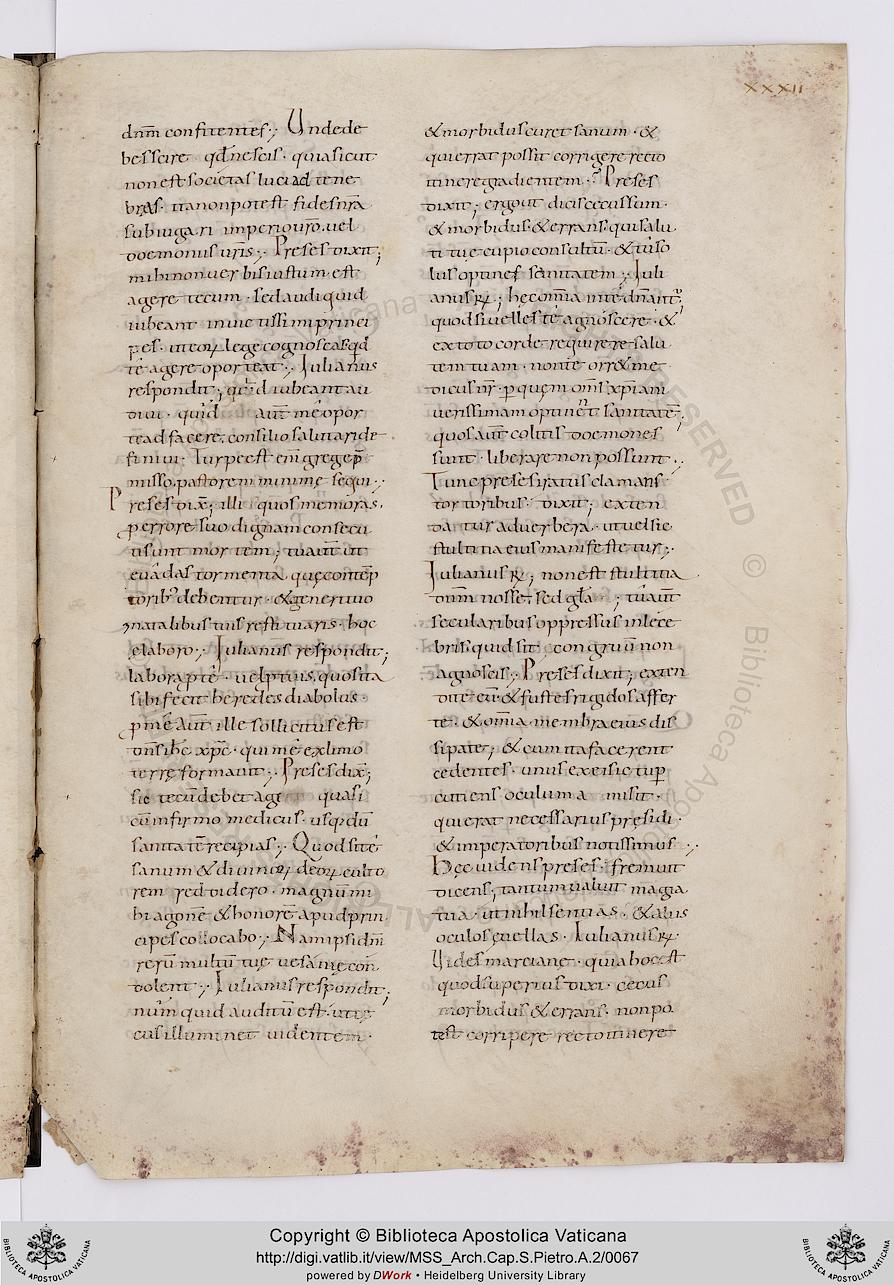 XXXII
dnm̄ confitentes; Unde de
bes scire qd̄ nescis. quia sicut
non est societas luci ad tene
bras. ita non potest fides nr̄a
subiugari imperio ur̄o. uel
doemoniis ur̄is; Preses dixit;
mihi non uerbis iustum est
agere tecum. sed audi quid
iubeant inuictissimi princi
pes. ut eoꝝ lege cognoscas qd
te agere oporteat; Iulianus
respondit; quid iubeant au
diui. quid aut̄ me opor
teat facere. consilio salutari de
finiui. Turpe est eni̅ grege p̄
misso. pastorem minime sequi;
Preses dix̄; illi quos memoras.
ꝑ errore suo dignam consecu
ti sunt mortem; tu aut̄ ut
euadas tormenta quę contēp
toribꝰ debentur. & generi tuo
natalibus tuis restituaris. hoc
elaboro; Iulianus respondit;
labora ꝑ te. uel ꝑ tuis. quos ita
sibi fecit heredes diabolus.
ꝑ me aut̄ ille sollicitus est
dns̄ ihc̄ xpc̄. qui me ex limo
terrę formauit; Preses dix̄;
sic tecū debet agi quasi
cū infirmo medicus. usq; dū
sanitatē recipias; Quod si te
sanum & diuinoꝝ deoꝝ culto
rem reddidero. magnū mi
hi agonē & honorē apud prin
cipes collocabo; Nam ipsi dn̄i
rerū multū tuę uesanię con
dolent; Iulianus respondit;
nūm quid auditū est. ut cę
cus illuminet uidentem.
& morbidus curet sanum. &
qui errat possit corrigere recto
itinere gradientem. Preses
dixit; ergo ut dicis cecus sum.
& morbidus. & errans. qui salu
ti tuę cupio consultū. & tu so
lus optines sanitatem; Iuli
anus ꝶ; hęc omīa in te dn̄antꝰ;
quod si uelles te agnoscere. &
ex toto corde requirere salu
tem tuam. non te orr& me
dicus nr̄. ꝑ quem omn̄s xp̄iani
uerissimam optinent sanitatē;
quos aut̄ colitis doemones
sunt. liberare non possunt;
Tunc preses iratus clamans
tortoribus. dixit; exten
datur ad uerbera. ut uel sic
stultitia eius manifestetur;
Iulianus ꝶ; non est stultitia
dnm̄ nosse. sed gl̄a; tu aut̄
secularibus oppressus inlece
bris. quid sit congruū non
agnoscis; Preses dixit; exten
dite eū. & fustes rigidos affer
te. & omīa membra eius dis
sipate; & cum ita facerent
cedentes. unus ex eis ictu ꝑ
cutiens oculum amisit.
qui erat necessarius pręsidi.
& imperatoribus notissimus;
Hęc uidens preses. fremuit
dicens; tantum ualuit magia
tua. ut nihil sentias. & aliis
oculos euellas. Iulianus ꝶ.
Uides marciane. quia hoc est
quod superius dixi. cecus
morbidus & errans. non po
test corripere recto itinere
Copyright © Biblioteca Apostolica Vaticana
http://digi.vatlib.it/view/MSS_Arch.Cap.S.Pietro.A.2/0067
powered by DWork • Heidelberg University Library